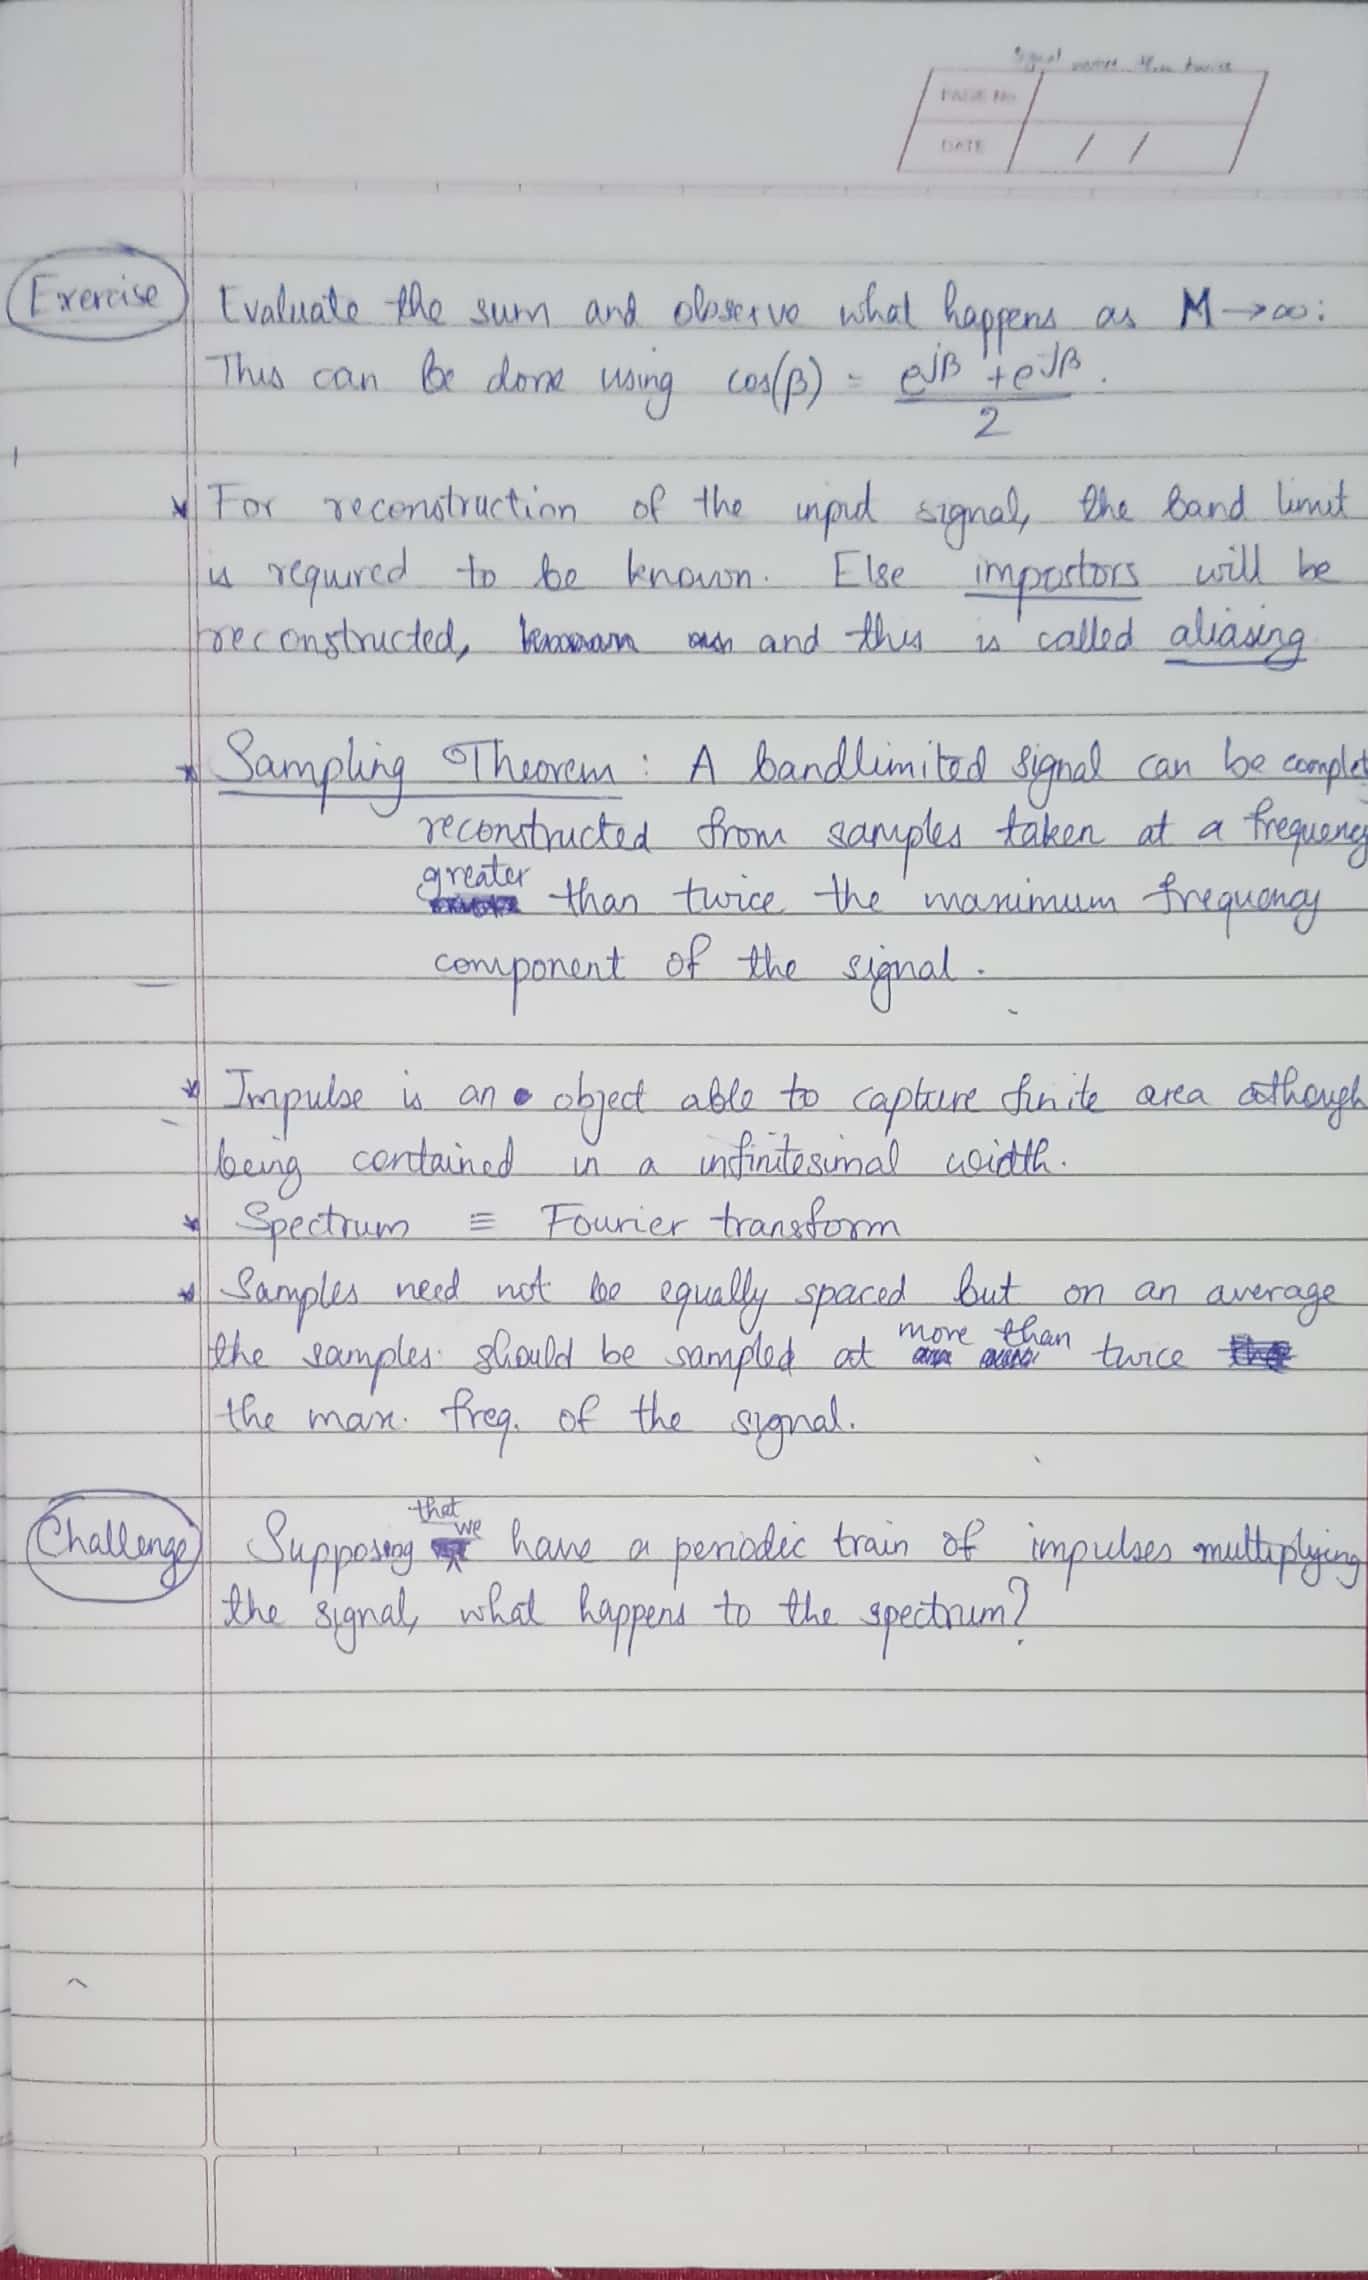 Signal than twice
PAGE No
DATE / /
Exercise Evaluate the sum and observe what happens as M→∞:
This can be done using cos(β) = (e^jβ + e^-jβ) / 2.
* For reconstruction of the input signal, the band limit
is required to be known. Else impostors will be
reconstructed, and this is called aliasing
* Sampling Theorem: A bandlimited signal can be complet
reconstructed from samples taken at a frequency
greater than twice the maximum frequency
component of the signal.
* Impulse is an object able to capture finite area although
being contained in a infinitesimal width.
* Spectrum ≡ Fourier transform
* Samples need not be equally spaced but on an average
the samples should be sampled at more than twice
the max. freq. of the signal.
Challenge Supposing that we have a periodic train of impulses multiplying
the signal, what happens to the spectrum?